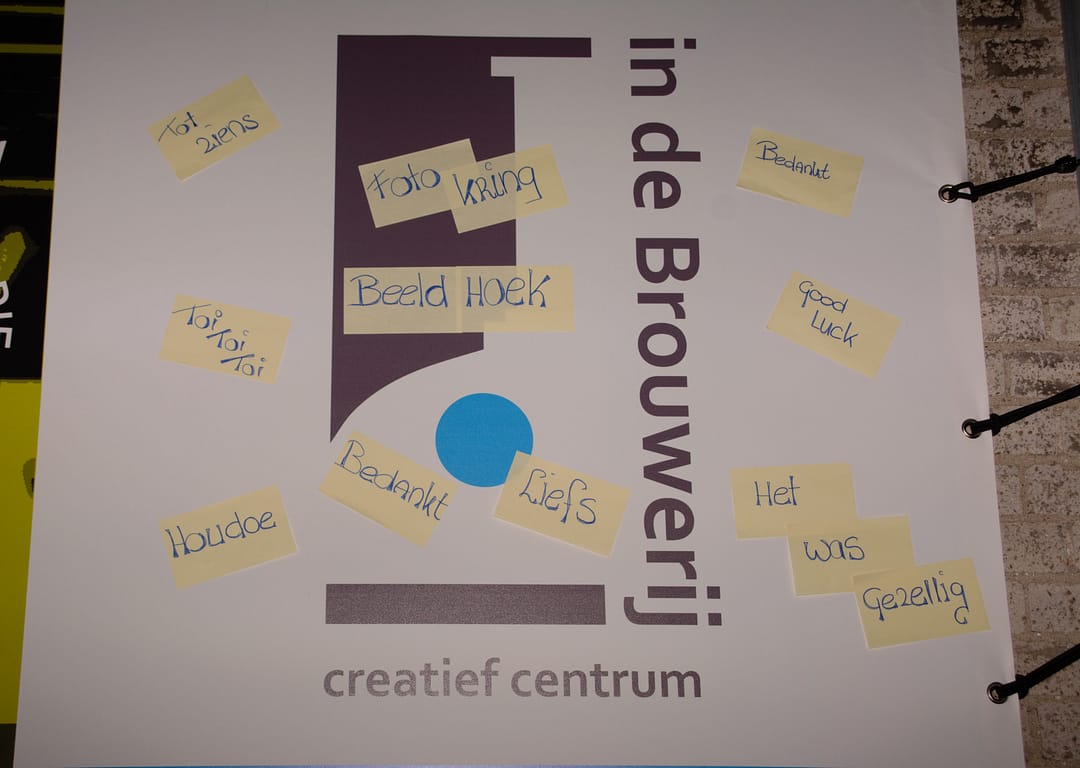 in de Brouwerij
Tot
ziens
Foto Kring
Bedankt
Beeld Hoek
Toi
Toi
Toi
Good
Luck
Bedankt
Liefs
Houdoe
Het
was
Gezellig
creatief centrum